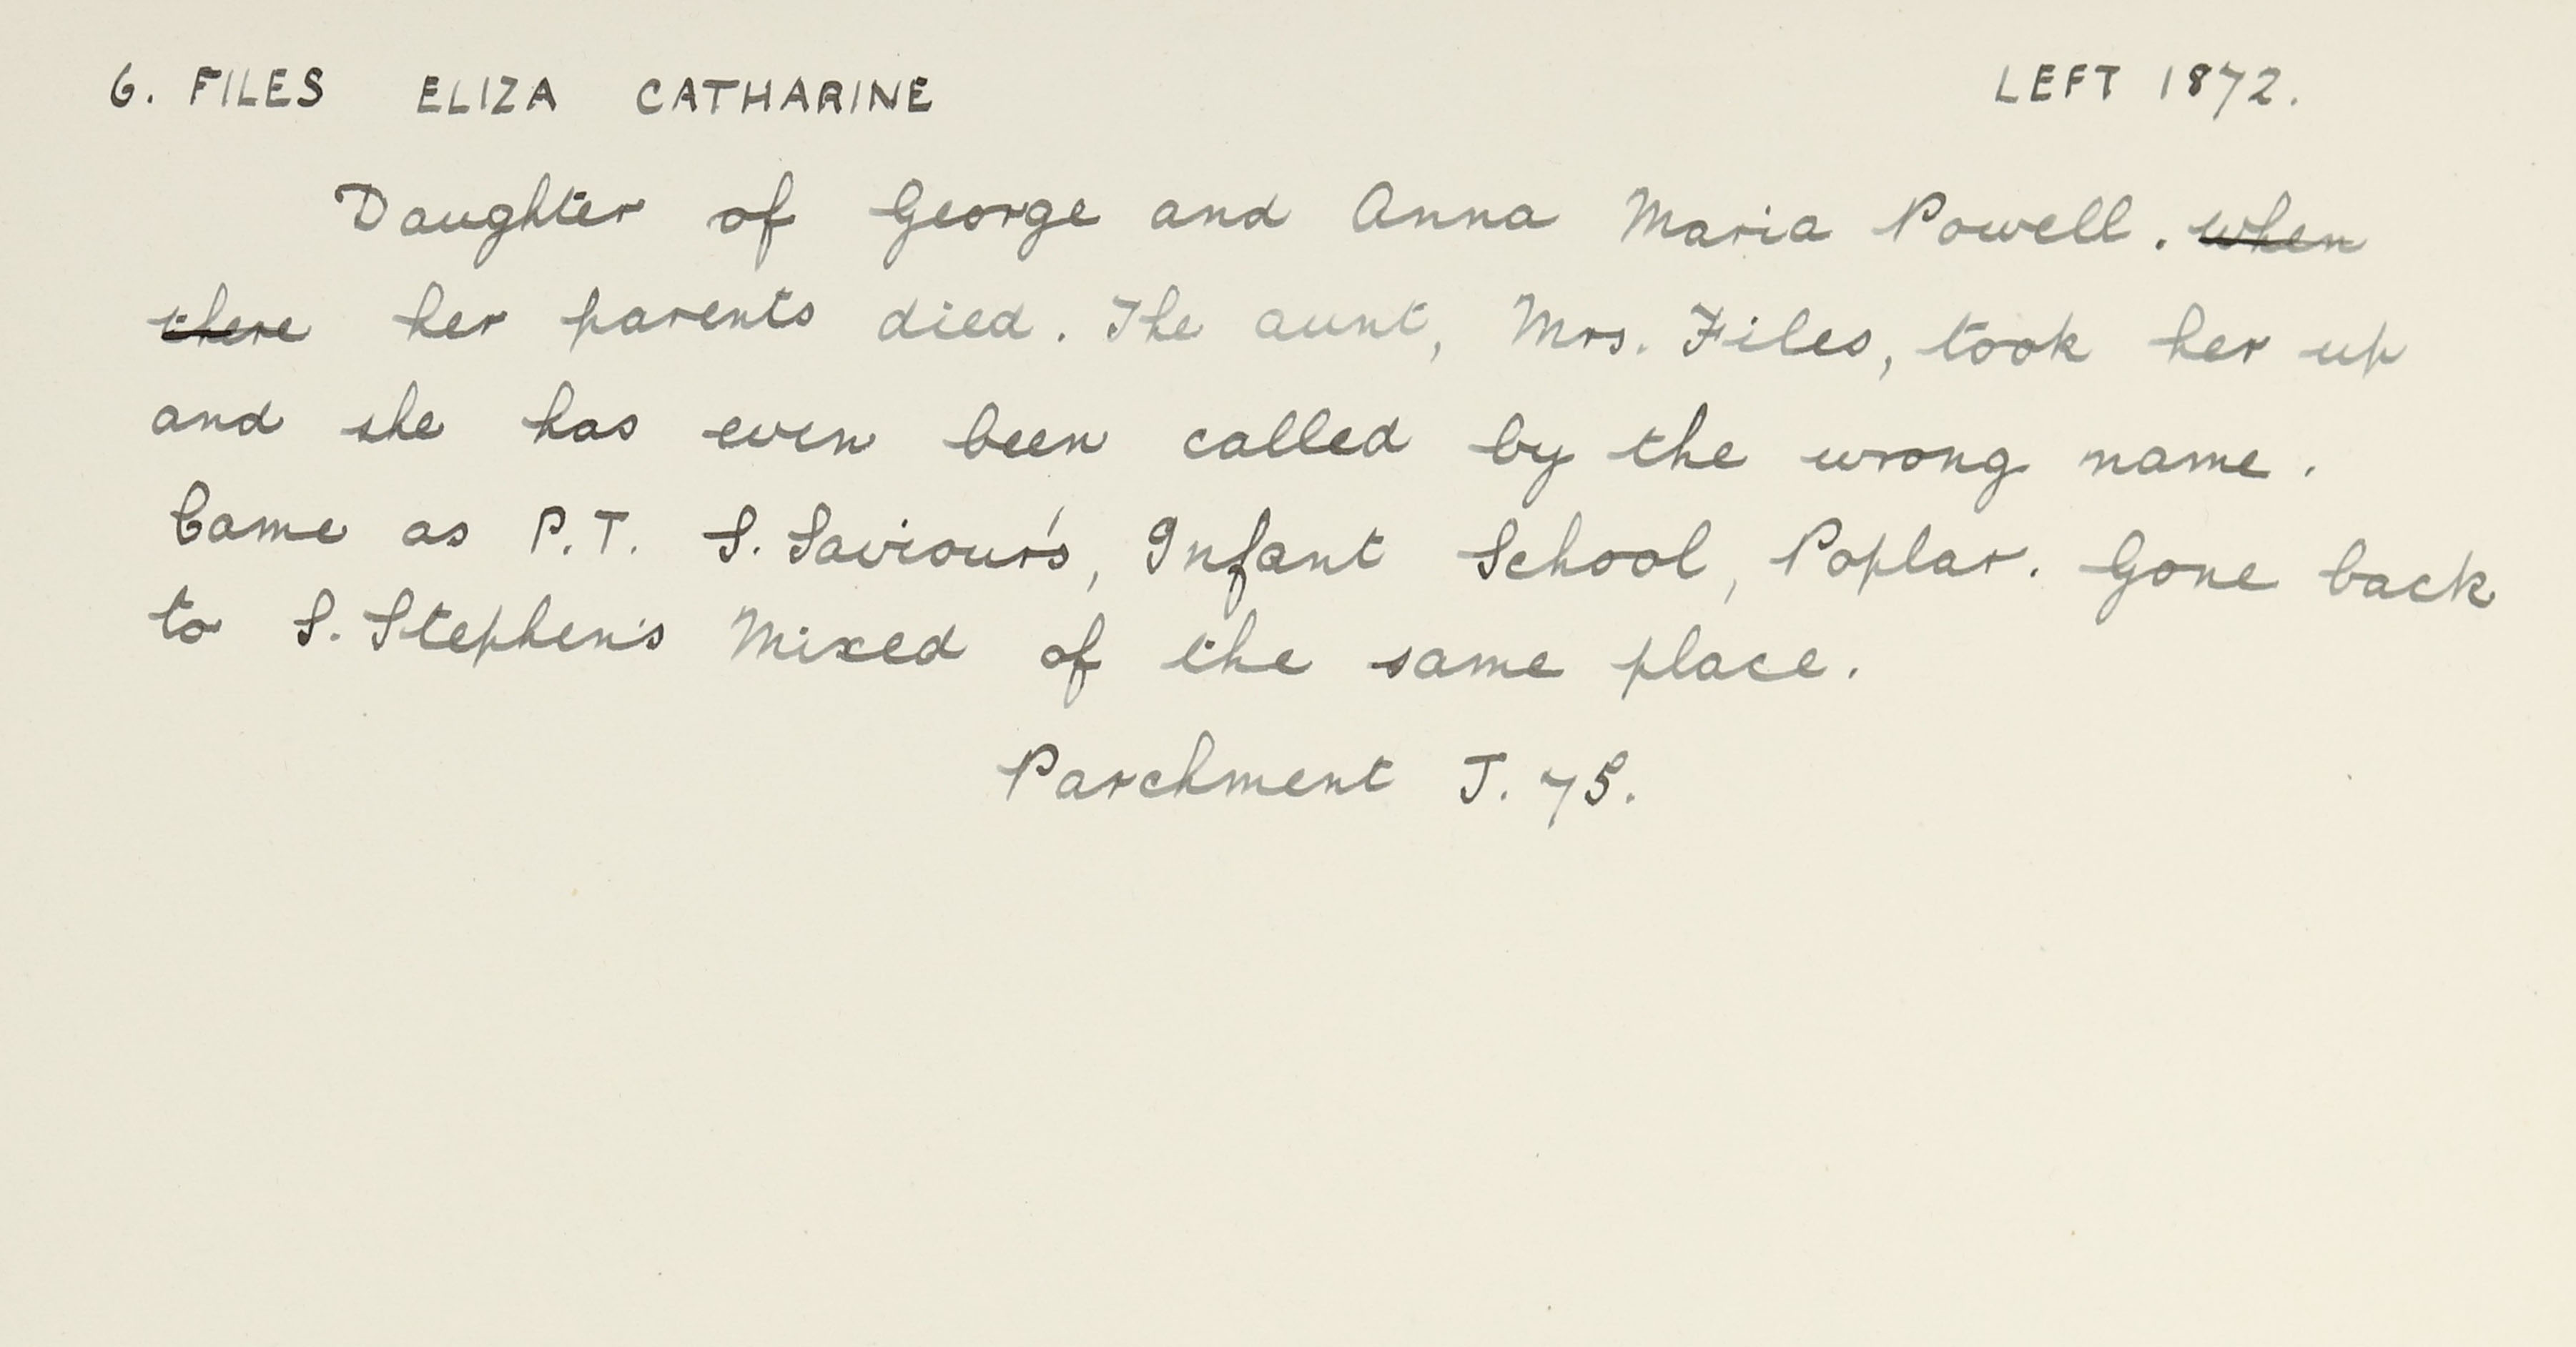 6. FILES ELIZA CATHARINE LEFT 1872.
Daughter of George and Anna Maria Powell. when
there her parents died. The aunt, Mrs. Files, took her up
and she has even been called by the wrong name.
Came as P.T. S. Saviour's, Infant School, Poplar. Gone back
to S. Stephen's Mixed of the same place.
Parchment J. 75.